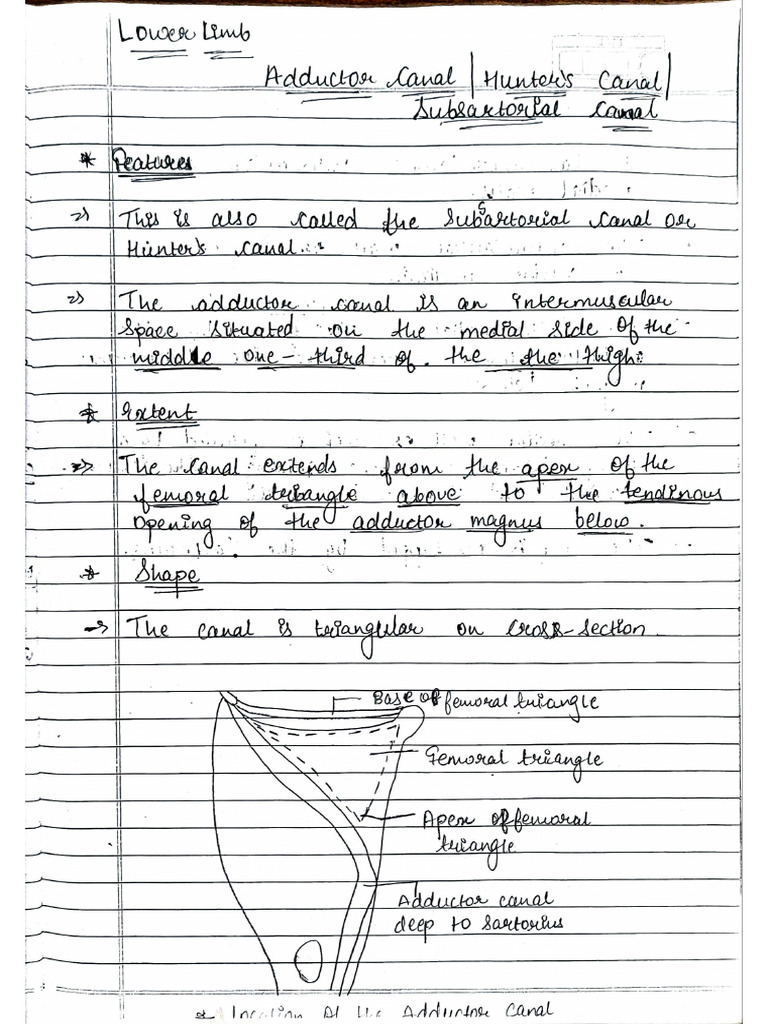 Lower Limb
Adductor Canal | Hunter's Canal |
Subsartorial Canal
* Features
=> This is also called the Subsartorial Canal or
Hunter's Canal.
=> The adductor canal is an intermuscular
space situated on the medial side of the
middle one-third of the the thigh.
* Extent
=> The Canal extends from the apex of the
femoral triangle above to the tendinous
opening of the adductor magnus below.
* Shape
-> The canal is triangular on cross-section.
Base of femoral triangle
Femoral triangle
Apex of femoral
triangle
Adductor canal
deep to Sartorius
* Location of the Adductor Canal